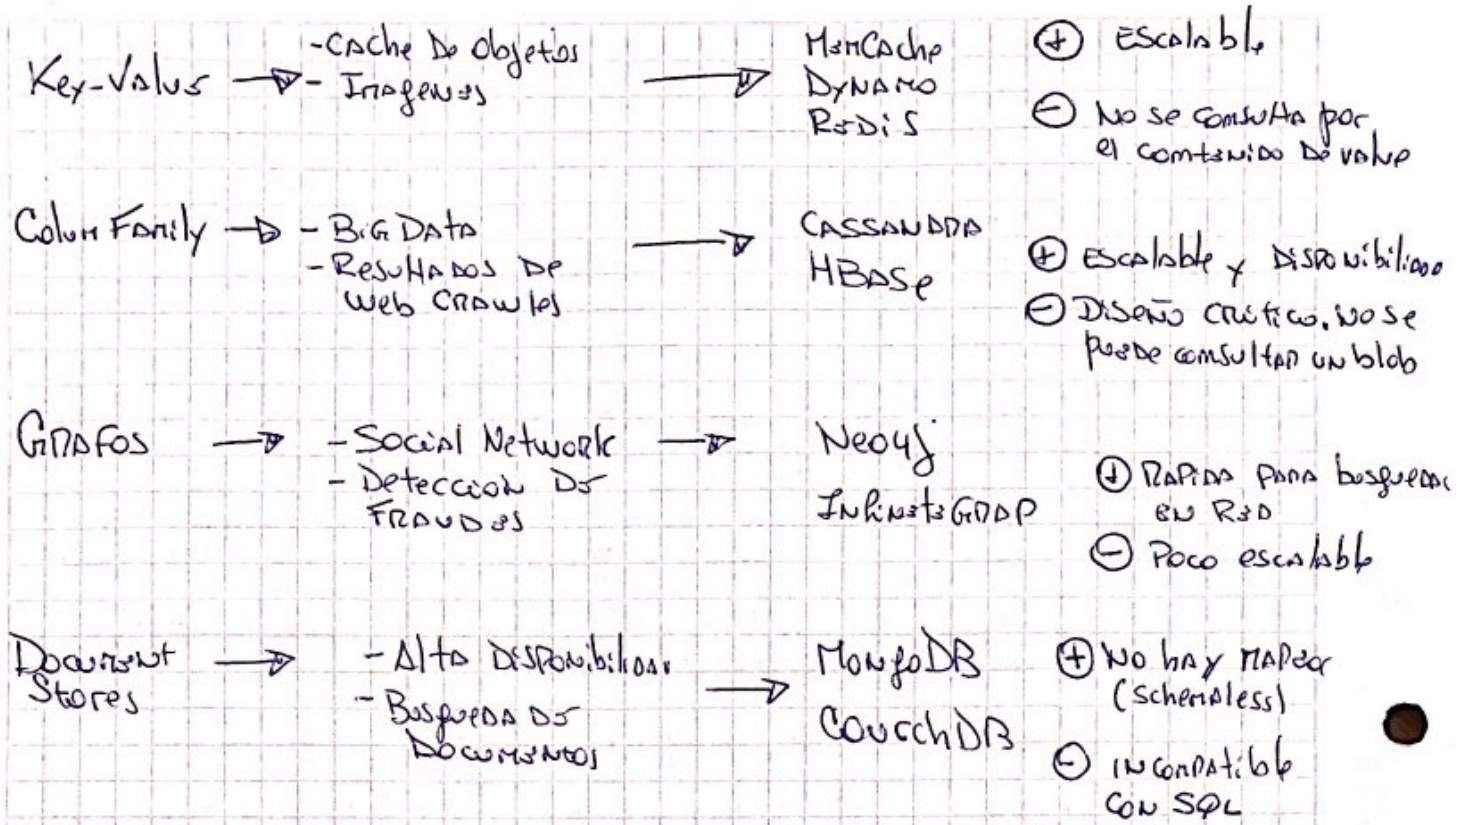 Key-Value → - Cache De Objetos
- Imagenes
→ MemCache
Dynamo
Redis
⊕ Escalable
⊖ No se consulta por
el contenido De value
Colum Family → - Big Data
- Resultados De
Web Crawles
→ CASSANDRA
HBASe
⊕ Escalable y Disponibilidad
⊖ Diseño crítico. No se
puede consultar un blob
Grafos → - Social Network
- Detección De
Fraudes
→ Neo4j
InfiniteGrap
⊕ Rapida para busquedas
en Red
⊖ Poco escalable
Document
Stores
→ - Alta Disponibilidad
- Busqueda De
Documentos
→ MongoDB
CourchDB
⊕ No hay mapeor
(schemaless)
⊖ incompatible
con SQL